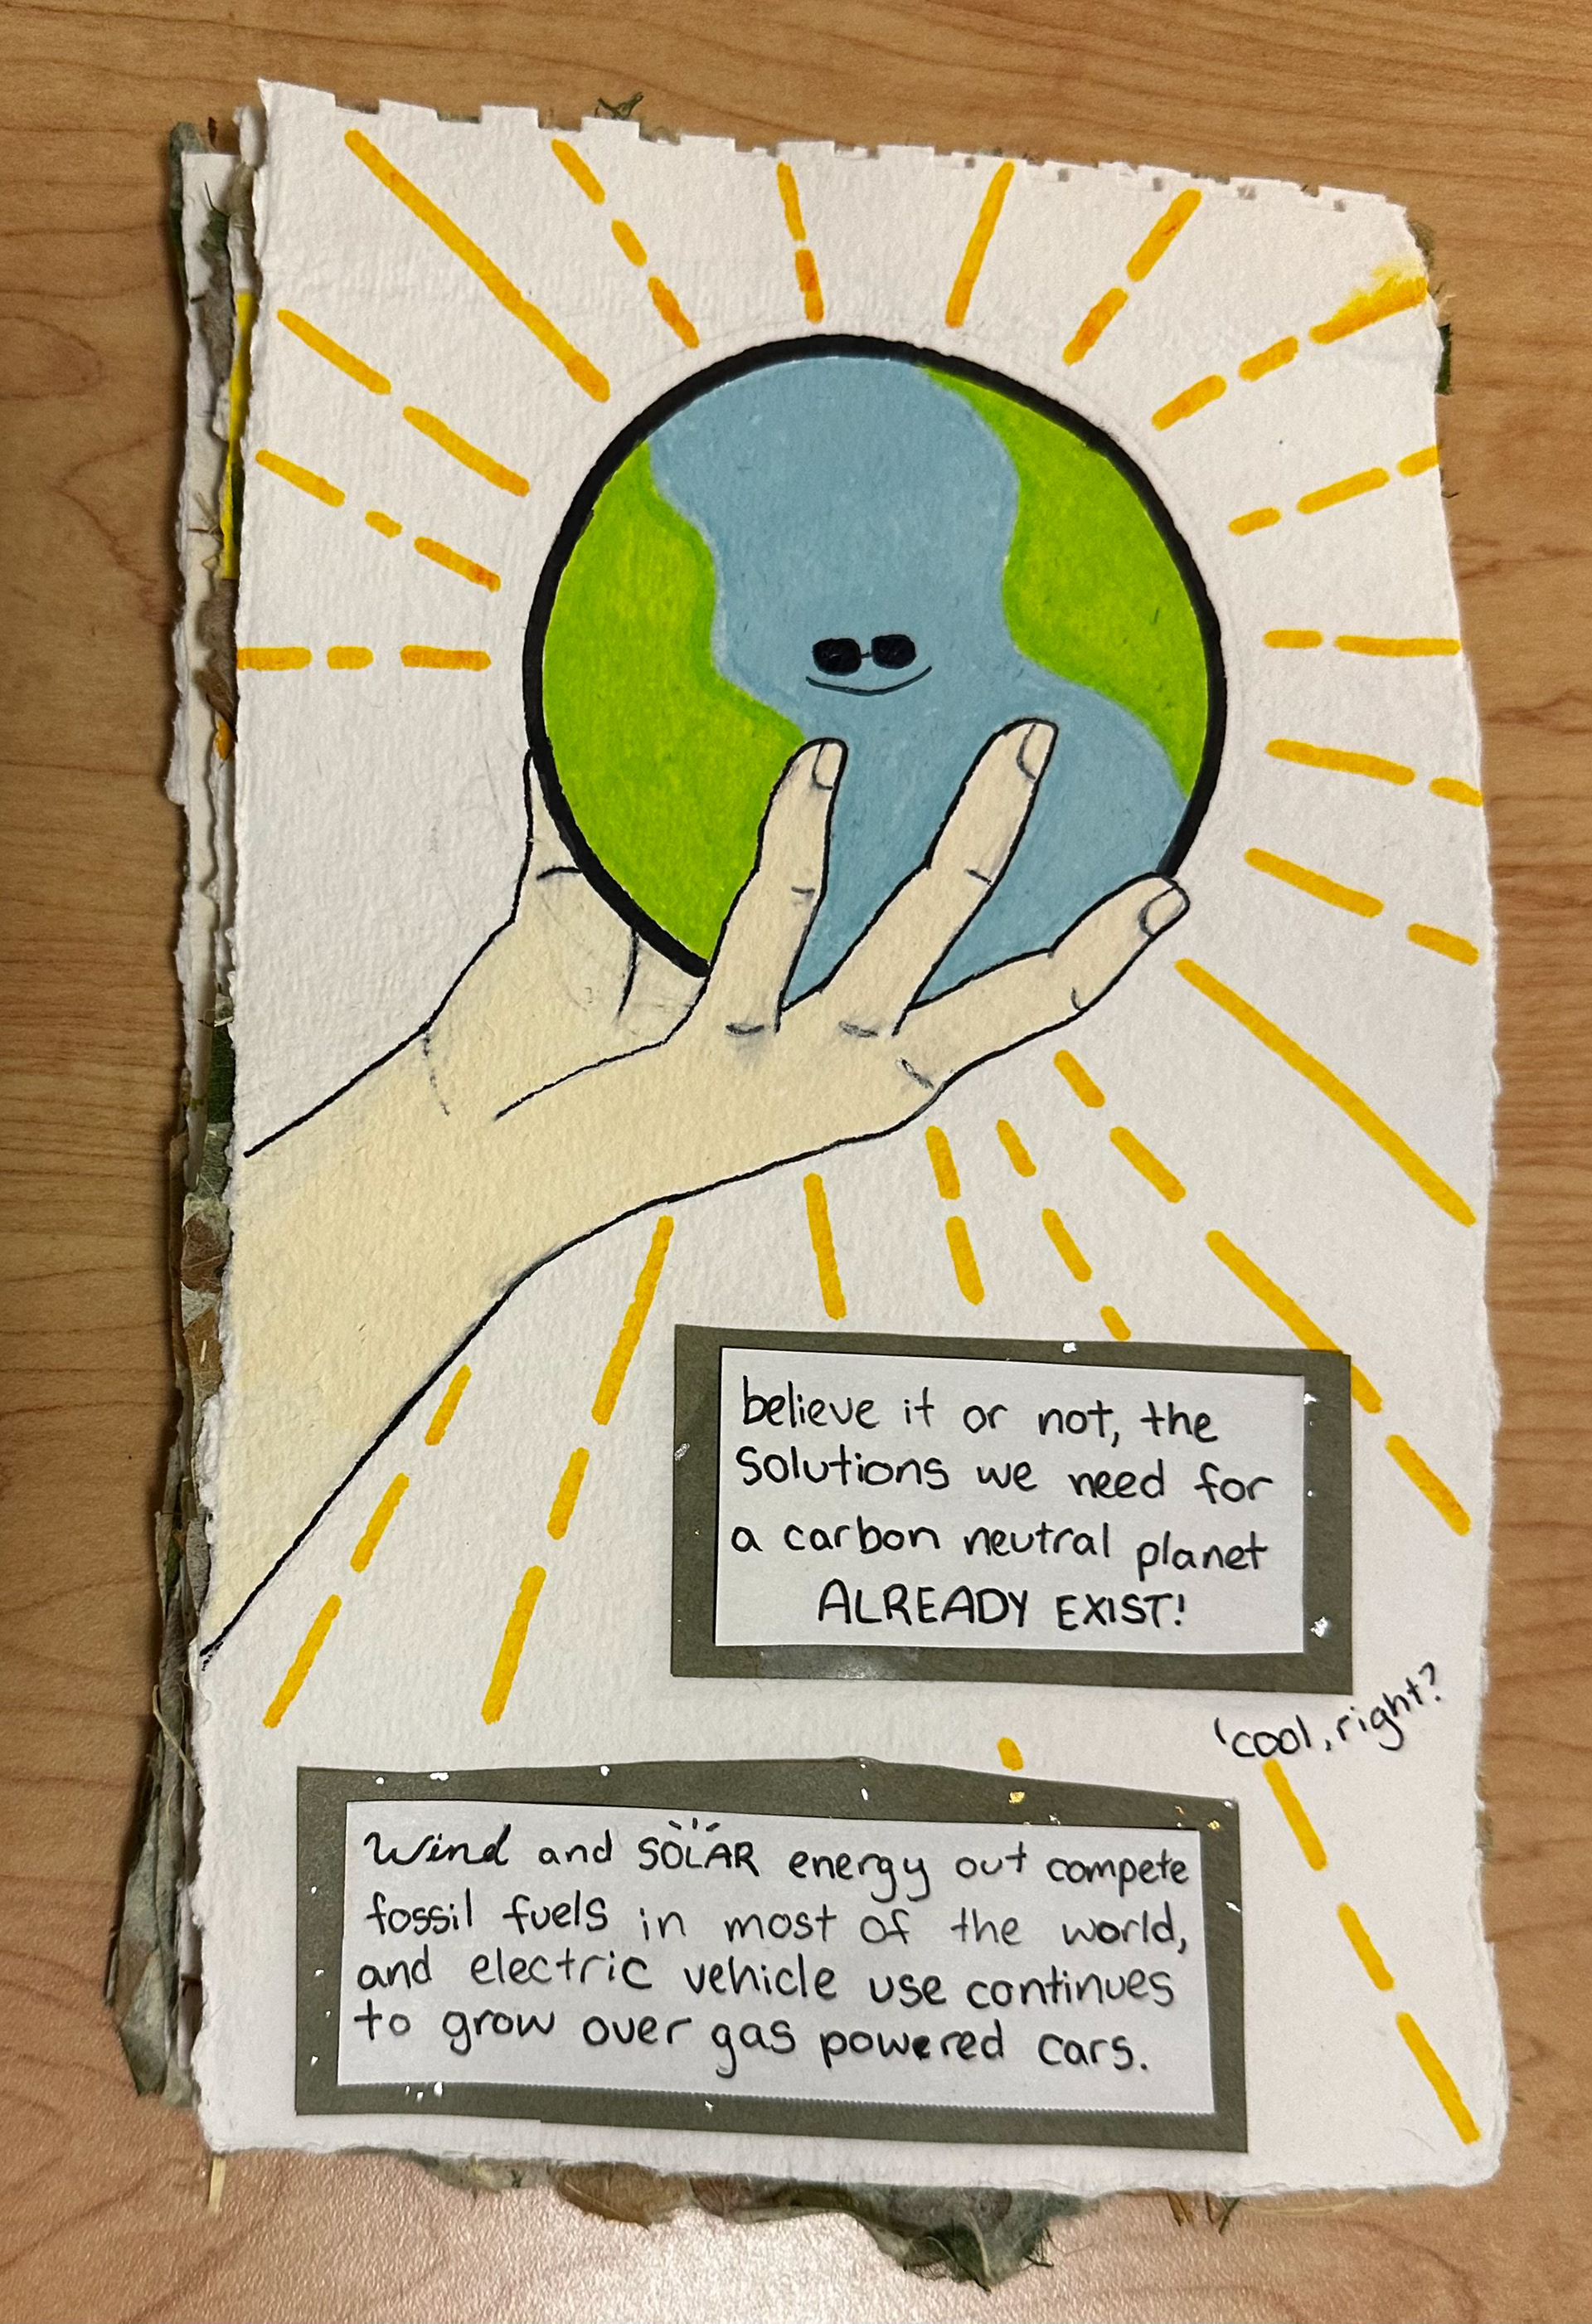 believe it or not, the
solutions we need for
a carbon neutral planet
ALREADY EXIST!
'cool, right?
Wind and SOLAR energy out compete
fossil fuels in most of the world,
and electric vehicle use continues
to grow over gas powered cars.